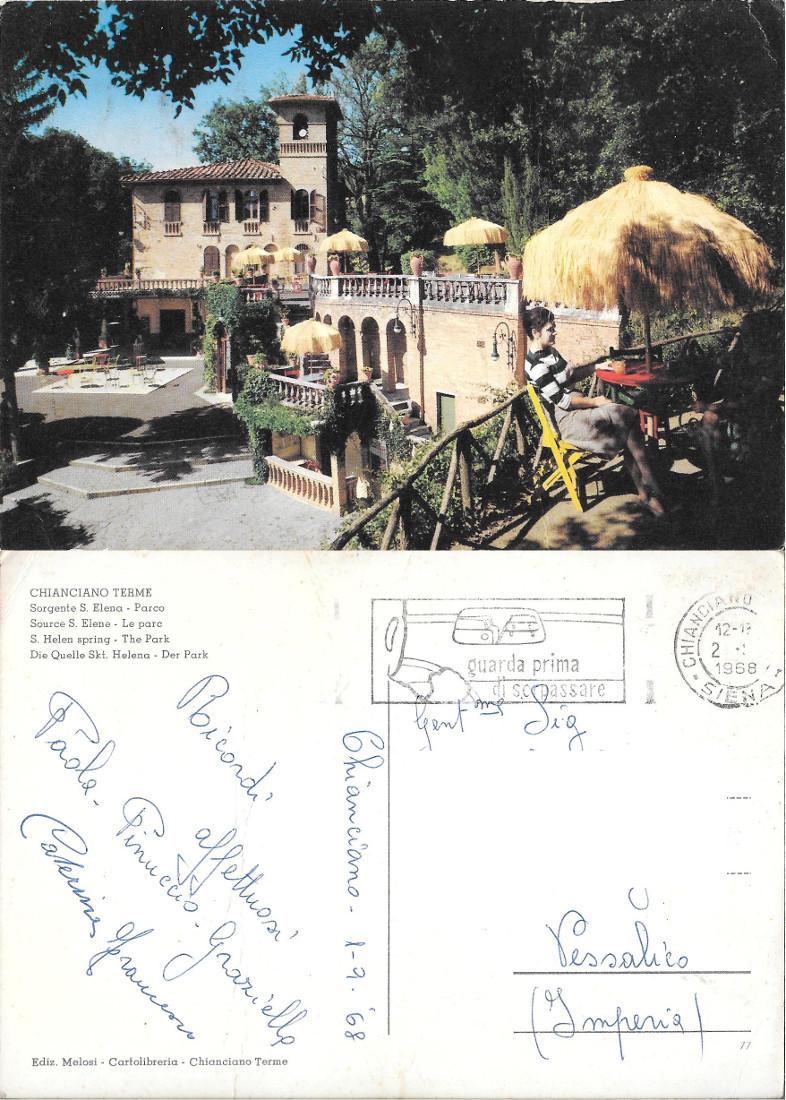 CHIANCIANO TERME
Sorgente S. Elena - Parco
Source S. Elene - Le parc
S. Helen spring - The Park
Die Quelle Skt. Helena - Der Park
guarda prima
di sorpassare
CHIANCIANO
12-1
2
1968
SIENA
Ricordi
affettuosi
Paola - Pinuccio - Graziella
Caterina Francesco
Chianciano - 1-9. '68
Gent.me Sig
Vessalico
(Imperia)
77
Ediz. Melosi - Cartolibreria - Chianciano Terme